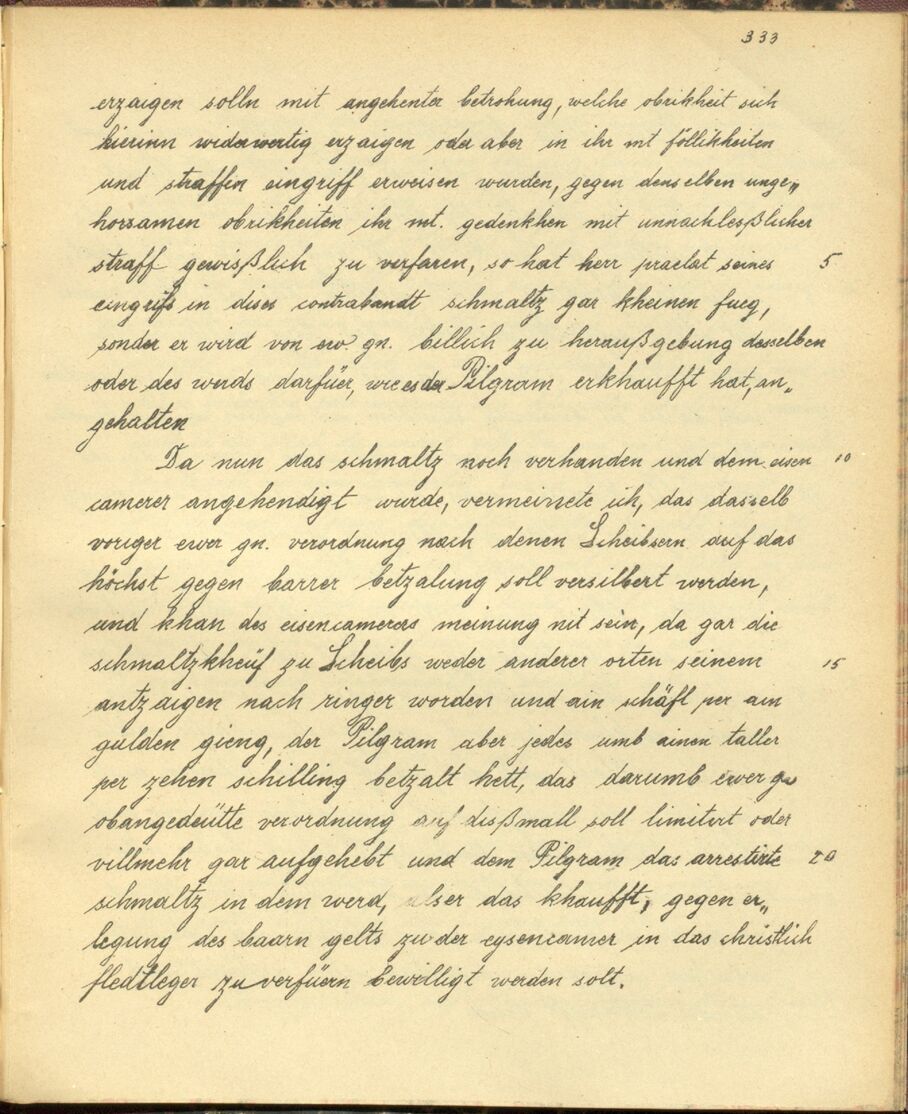 333
erzaigen solln mit angehenter betrohung, welche obrikheit sich
hierinn widerwertig erzaigen oder aber in ihr mt föllikheiten
und straffen eingriff erweisen wurden, gegen denselben unge„
horsamen obrikheiten ihr mt. gedenkhen mit unnachleßlicher
straff gewißlich zu verfaren, so hat herr praelat seines 5
eingrifs in dises contrabandt schmaltz gar kheinen fueg,
sonder er wird von ew gn. billich zu heraußgebung desselben
oder des werds darfüer, wie es der Pilgram erkhaufft hat, an„
gehalten
Da nun das schmaltz noch verhanden und dem eisen 10
camerer angehendigt wurde, vermeinete ich, das dasselb
voriger ewer gn. verordnung nach denen Scheibsern auf das
höchst gegen barrer betzalung soll versilbert werden,
und khan des eisencamerers meinung nit sein, da gar die
schmaltzkheüf zu Scheibs weder anderer orten seinem 15
antzaigen nach ringer worden und ain schäfl per ain
gulden gieng, der Pilgram aber jedes umb ainen taller
per zehen schilling betzalt hett, das darumb ewer gn
obangedeütte verordnung auf dißmall soll limitirt oder
villmehr gar aufgehebt und dem Pilgram das arrestirte 20
schmaltz in dem werd, als er das khaufft, gegen er„
legung des baarn gelts zu der eysencamer in das christlich
fledtleger zu verfüern bewilligt werden solt.